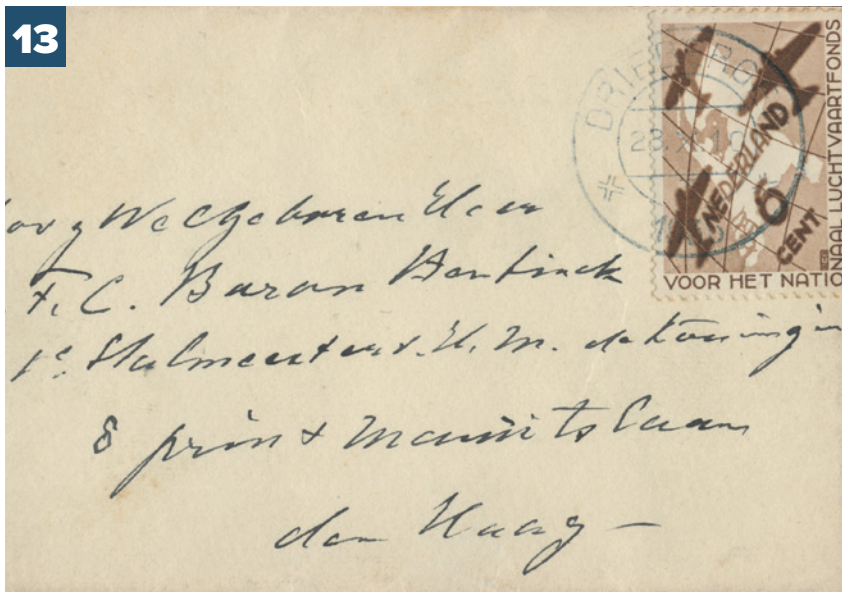 13
DRIEBERGEN
NEDERLAND
6
CENT
VOOR HET NATIONAAL LUCHTVAARTFONDS
Hoog Welgeboren Heer
F. C. Baron Bentinck
1e Stalmeester v. H. M. de Koningin
8 prins Maurits Laan
den Haag